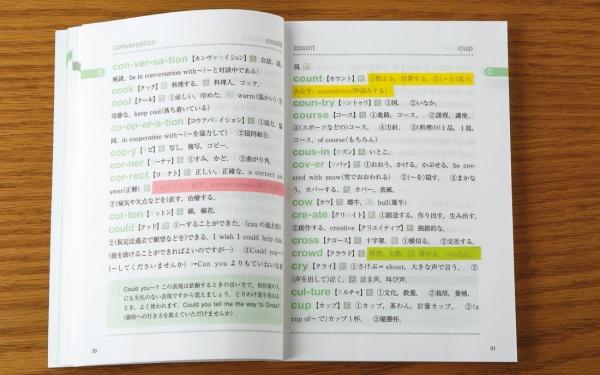 conversation
could
C
con·ver·sa·tion【カンヴァセイション】名 会話, 談
座談. be in conversation with~(~と対談中である)
cook【クック】動 料理する, 名 料理人, コック.
cool【クール】形 ①涼しい, 冷めた, 反 warm(温かい) ②
冷静な. keep cool(落ち着いている)
co·op·er·a·tion【コウアパレイション】名 ①協力, 協
同, in cooperation with~(~を協力して) ②協同組合.
cop·y【カピ】動 写し, 複写, コピー.
cor·ner【コーナァ】名 ①すみ, かど, ②曲がり角.
cor·rect【コレクト】形 正しい, 正確な, a correct an-
swer(正解)
②(病気や欠点などを)直す, 治療する.
cot·ton【コットン】名 綿, 綿花.
could【クッド】助 ①~することができた. (canの過去形)
②(仮定法過去で願望などを)できる, I wish I could help him.
(彼を助けることができればよいのですが…) ③Could you~?
(~してくださいませんか) →Can youよりもていねいな
Could you~? この表現は依頼するときの言い方で, 初対面の人
にも失礼のない表現ですから覚えましょう. とりわけ道を尋ねる
とき, よく使われます. Could you tell me the way to Ginza?
(銀座への行き方を教えていただけませんか)
30
count
cup
C
風.
count【カウント】動 ①数える, 計算する, ②(~と)思う,
みなす, countdown(秒読みする)
coun·try【カントゥリ】名 ①国. ②いなか.
course【コース】名 ①進路, コース. ②課程, 講座.
③(スポーツなどの)コース. ④方針. ⑤(料理の)1品, 1皿,
コース, of course(もちろん)
cous·in【カズン】名 いとこ.
cov·er【カバァ】動 ①おおう, かける, かぶせる, be cov-
ered with snow(雪でおおわれる) ②(~を)隠す. ③まかな
う, カバーする, 名 カバー, 表紙.
cow【カウ】名 雌牛, 反 bull(雄牛)
cre·ate【クリエイト】動 ①創造する, 作り出す, 生み出す,
②創作する, creative【クリエイティブ】独創的な.
cross【クロース】名 十字架, 動 ①横切る, ②交差する,
crowd【クラウド】名 群衆, 大勢, 動 群がる, つめ込む.
cry【クライ】動 ①さけぶ=shout, 大きな声で言う. ②
(声を出して)泣く, 名 泣き声, 叫び声.
cul·ture【カルチァ】名 ①文化, 教養, ②栽培, 養殖.
cup【カップ】名 ①カップ, 茶わん, 計量カップ. ②(a
cup of~で)カップ1杯, ③優勝杯.
31